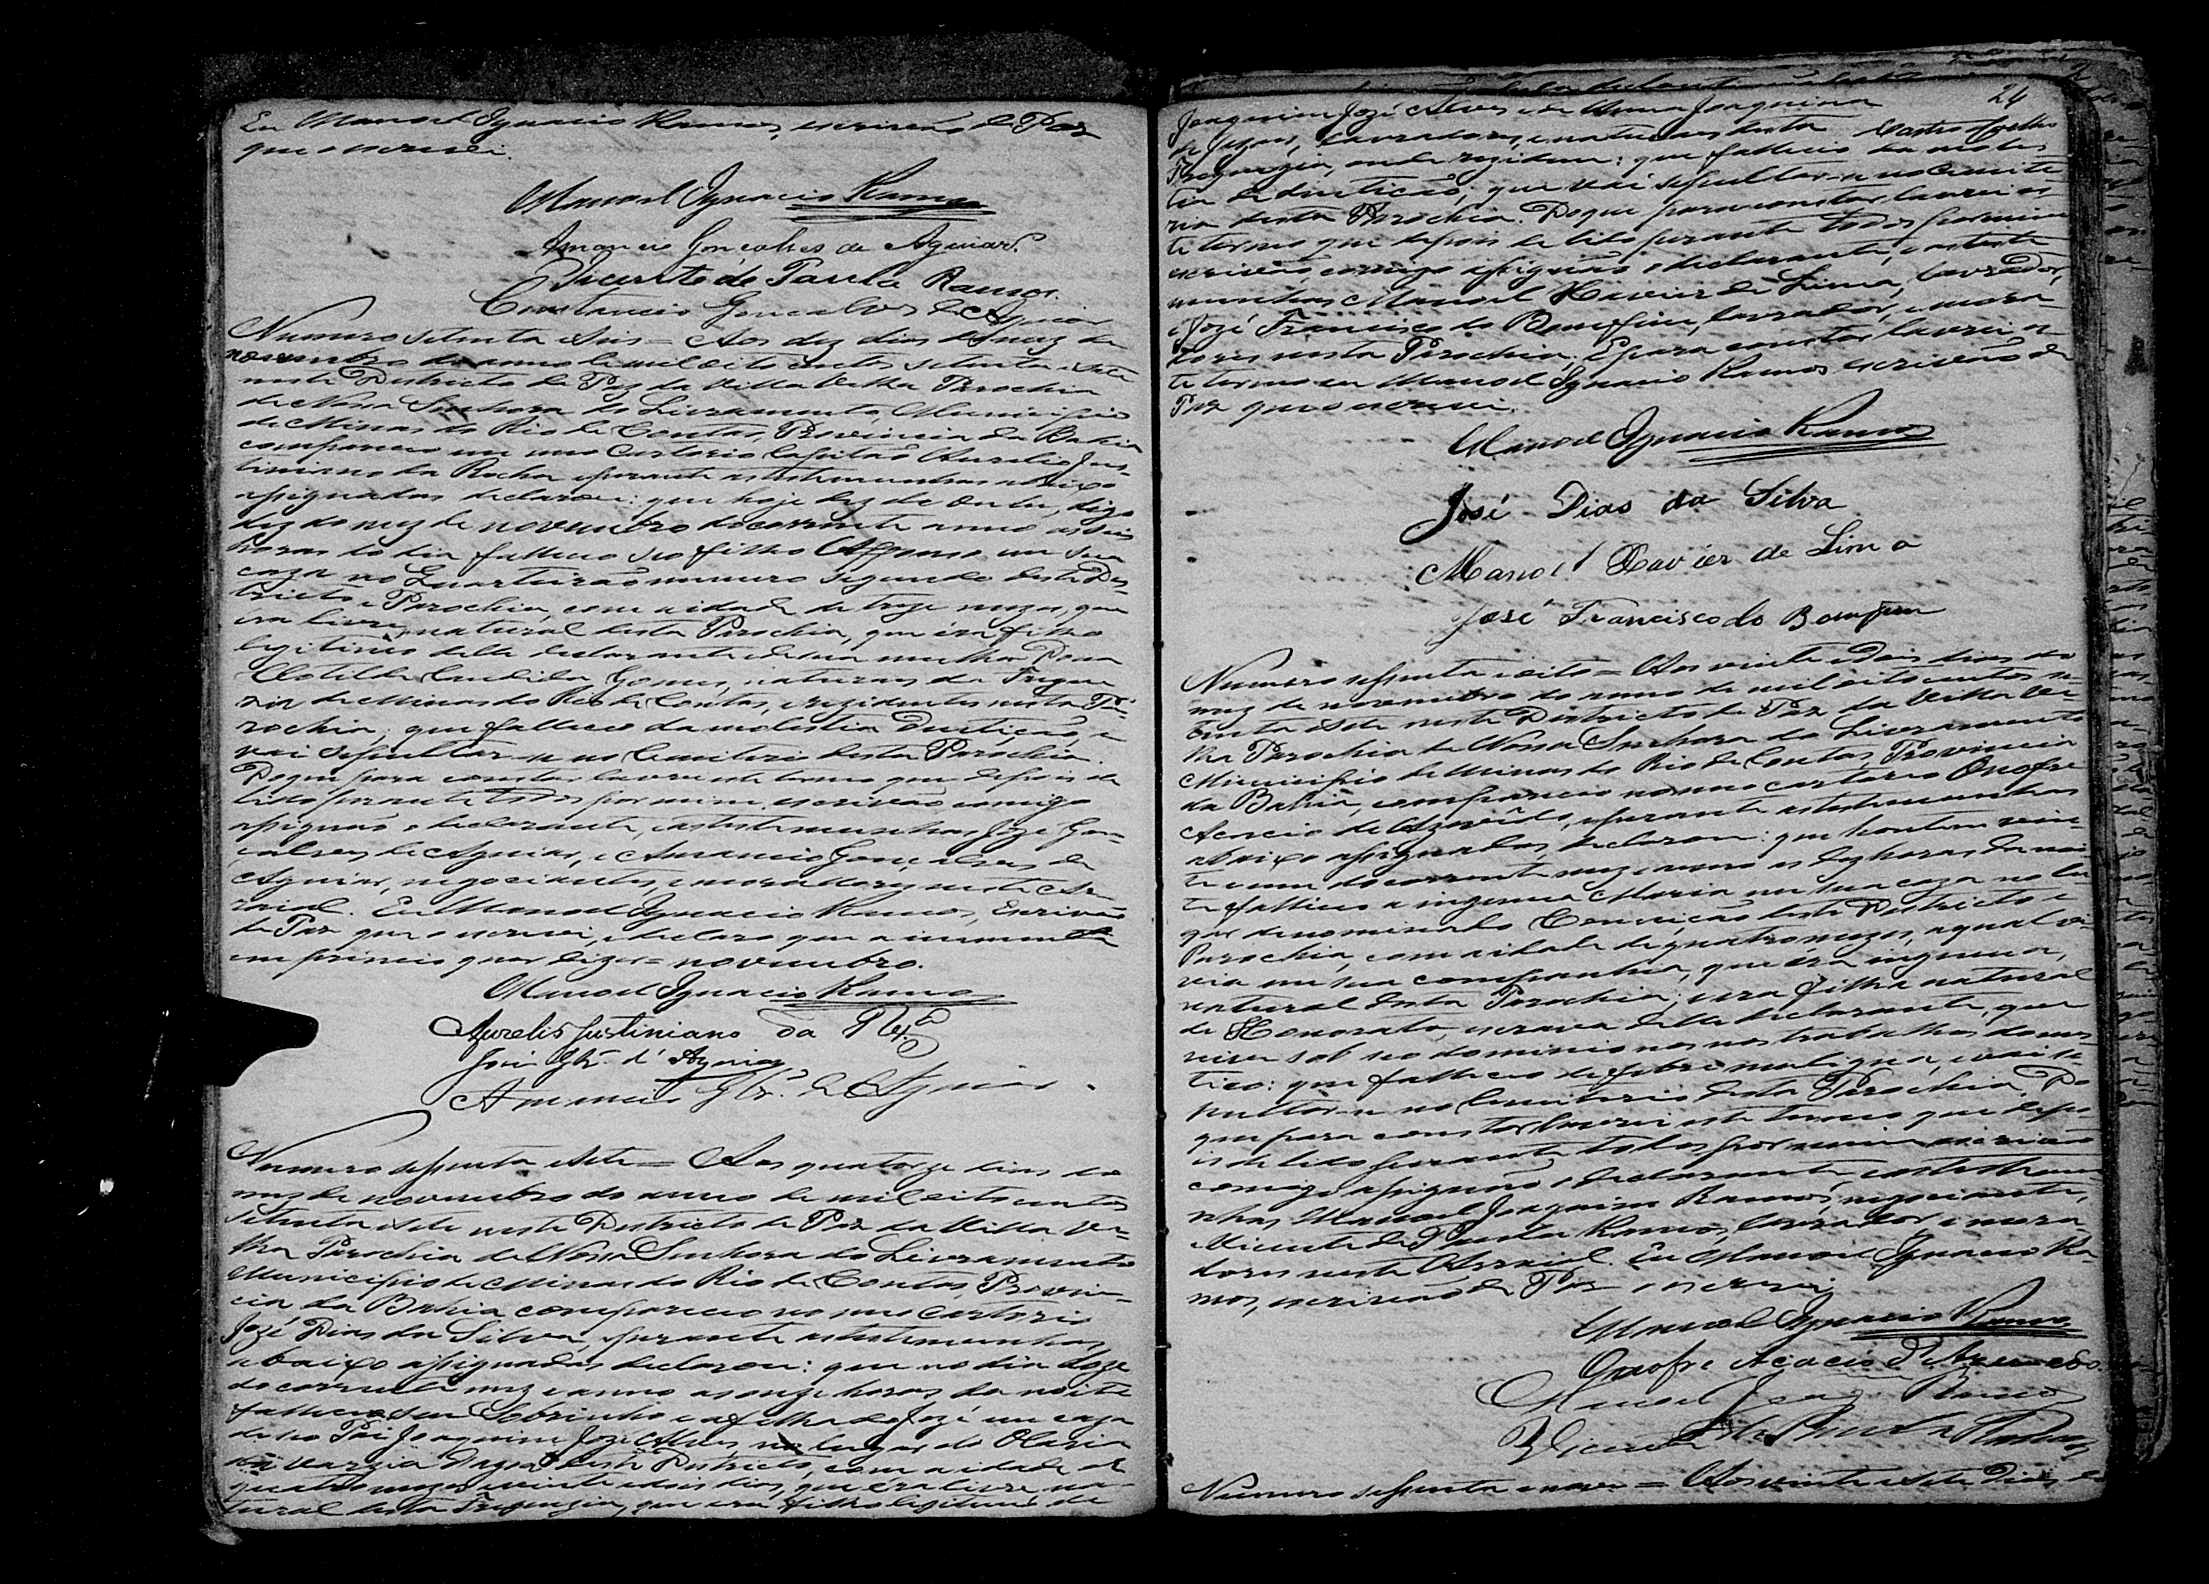 Eu Manoel Ignacio Ramos, escrivão de Paz
que o escrevi.
Manoel Ignacio Ramos
Amancio Gonçalves de Aguiar
Vicente de Paula Ramos
Constancio Gonçalves de Aguiar
Numero setenta e seis = Aos dez dias do mez de
novembro do anno de mil oito centos setenta e sete
neste Districto de Paz da Villa Velha Parochia
de Nossa Senhora do Livramento, Municipio
de Minas do Rio de Contas, Provincia da Bahia
compareceo em meo Cartorio Capitão Aurelio Jus-
tiniano da Rocha e perante as testemunhas abaixo
assignadas declarou: que hoje dez de digo
dez do mez de novembro do corrente anno as seis
horas do dia falleceo seo filho Affonso em sua
caza no Quarteirão numero segundo deste Des-
tricto e Parochia, com a idade de treze mezes, que
éra livre, natural desta Parochia, que éra filho
legitimo delle declarante e de sua mulher Dona
Clotilde Candida Gomes, naturaes da Fregue
zia de Minas do Rio de Contas, e rezidentes nesta Pa-
rochia, que falleceo da molestia Dentição, e
vai sepultar-se no Cemiterio desta Parochia.
Do que para constar lavrei este termo que depois de
lido perante todos por mim, escrivão comigo
assignão o declarante, e as testemunhas José Gon-
çalves de Aguiar, e Amancio Gonçalves de
Aguiar, negociantes, e moradores neste Ar-
raial. Eu Manoel Ignacio Ramos, Escrivão
de Paz que o escrevi, e declaro que a emmenda
em principio quer dizer = novembro.
Manoel Ignacio Ramos
Aurelio Justiniano da Rcha
José Glz. d' Aguiar
Amancio Glz. de Aguiar
Numero setenta e sete = Aos quatorze dias do
mez de novembro do anno de mil oito centos
setenta e sete neste Districto de Paz da Villa Ve-
lha Parochia de Nossa Senhora do Livramento
Municipio de Minas do Rio de Contas, Provin-
cia da Bahia compareceo no meo Cartorio
José Dias da Silva, e perante as testemunhas
abaixo assignadas declarou: que no dia doze
do corrente mez e anno as onze horas da noite
falleceo seu Sobrinho e José em caza
de seo Pai Joaquim José Alves, no lugar do Olaria
deste Districto, com a idade de
quatro mezes e vinte e dois dias, que éra livre na-
tural desta Freguezia, que éra filho legitimo de
24
Joaquim José Alves e de Anna Joaquina
de Jesus, lavradores, e naturaes desta
Freguezia, onde rezidem: que falleceo da moles
tia de dentição, que vai sepultar-se no Cemite
rio desta Parochia. Do que para constar lavrei es
te termo que depois de lido perante todos por mim
escrivão, comigo assignão o declarante, e as teste
munhas Manoel Xavier de Lima, lavrador,
e José Francisco do Bomfim, lavrador, e mora-
dores nesta Parochia. E para constar lavrei es-
te termo eu Manoel Ignacio Ramos escrivão de
Paz que o escrevi.
Manoel Ignacio Ramos
José Dias da Silva
Manoel Xavier de Lima
José Francisco do Bomfim
Numero setenta e oito = Aos vinte e dois dias do
mez de novembro do anno de mil oito centos se-
tenta e sete neste Districto de Paz da Villa Ve-
lha Parochia de Nossa Senhora do Livramento
Municipio de Minas do Rio de Contas, Provincia
da Bahia, compareceo no meo cartorio Onofre
Acacio de Azevêdo, e perante as testemunhas
abaixo assignadas declarou: que hontem vin-
te e um do corrente mez e anno as dez horas da noi-
te falleceo a ingenua Maria em sua caza no lu-
gar denominado Conceição deste Districto e
Parochia, com a idade de quatro mezes, a qual vi-
via em sua companhia, que éra ingenua,
natural desta Parochia; e era filha natural
de Honorata, escrava delle declarante, que
vive sob seo dominio nos trabalhos domes-
tico: que falleceo de febre maligna, e vai se
pultar-se no Cemiterio desta Parochia. Do
que para constar lavrei este termo que depo
is de lido perante todos por mim escrivão
comigo assignão o declarante, e as testemu-
nhas Manoel Joaquim Ramos, negociante,
Vicente de Paula Ramos, lavrador e mora-
dores neste Arraial. Eu Manoel Ignacio Ra-
mos, escrivão de Paz o escrevi
Manoel Ignacio Ramos
Onofre Acacio d'Azevedo
Manoel Ramos
Vicente de Paula Ramos
Numero setenta e nove = Aos vinte e sete Dias do